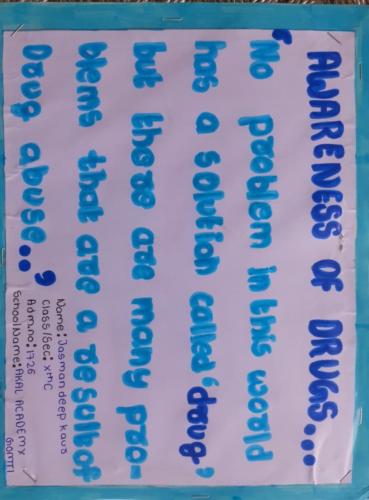 AWARENESS OF DRUGS...
"No problem in this world
has a solution called 'drug'
but there are many pro-
blems that are a result of
Drug abuse.."
Name: Jasmandeep kaur
Class/Sec: XthC
Adm.no: 1726
School Name: AKAL ACADEMY